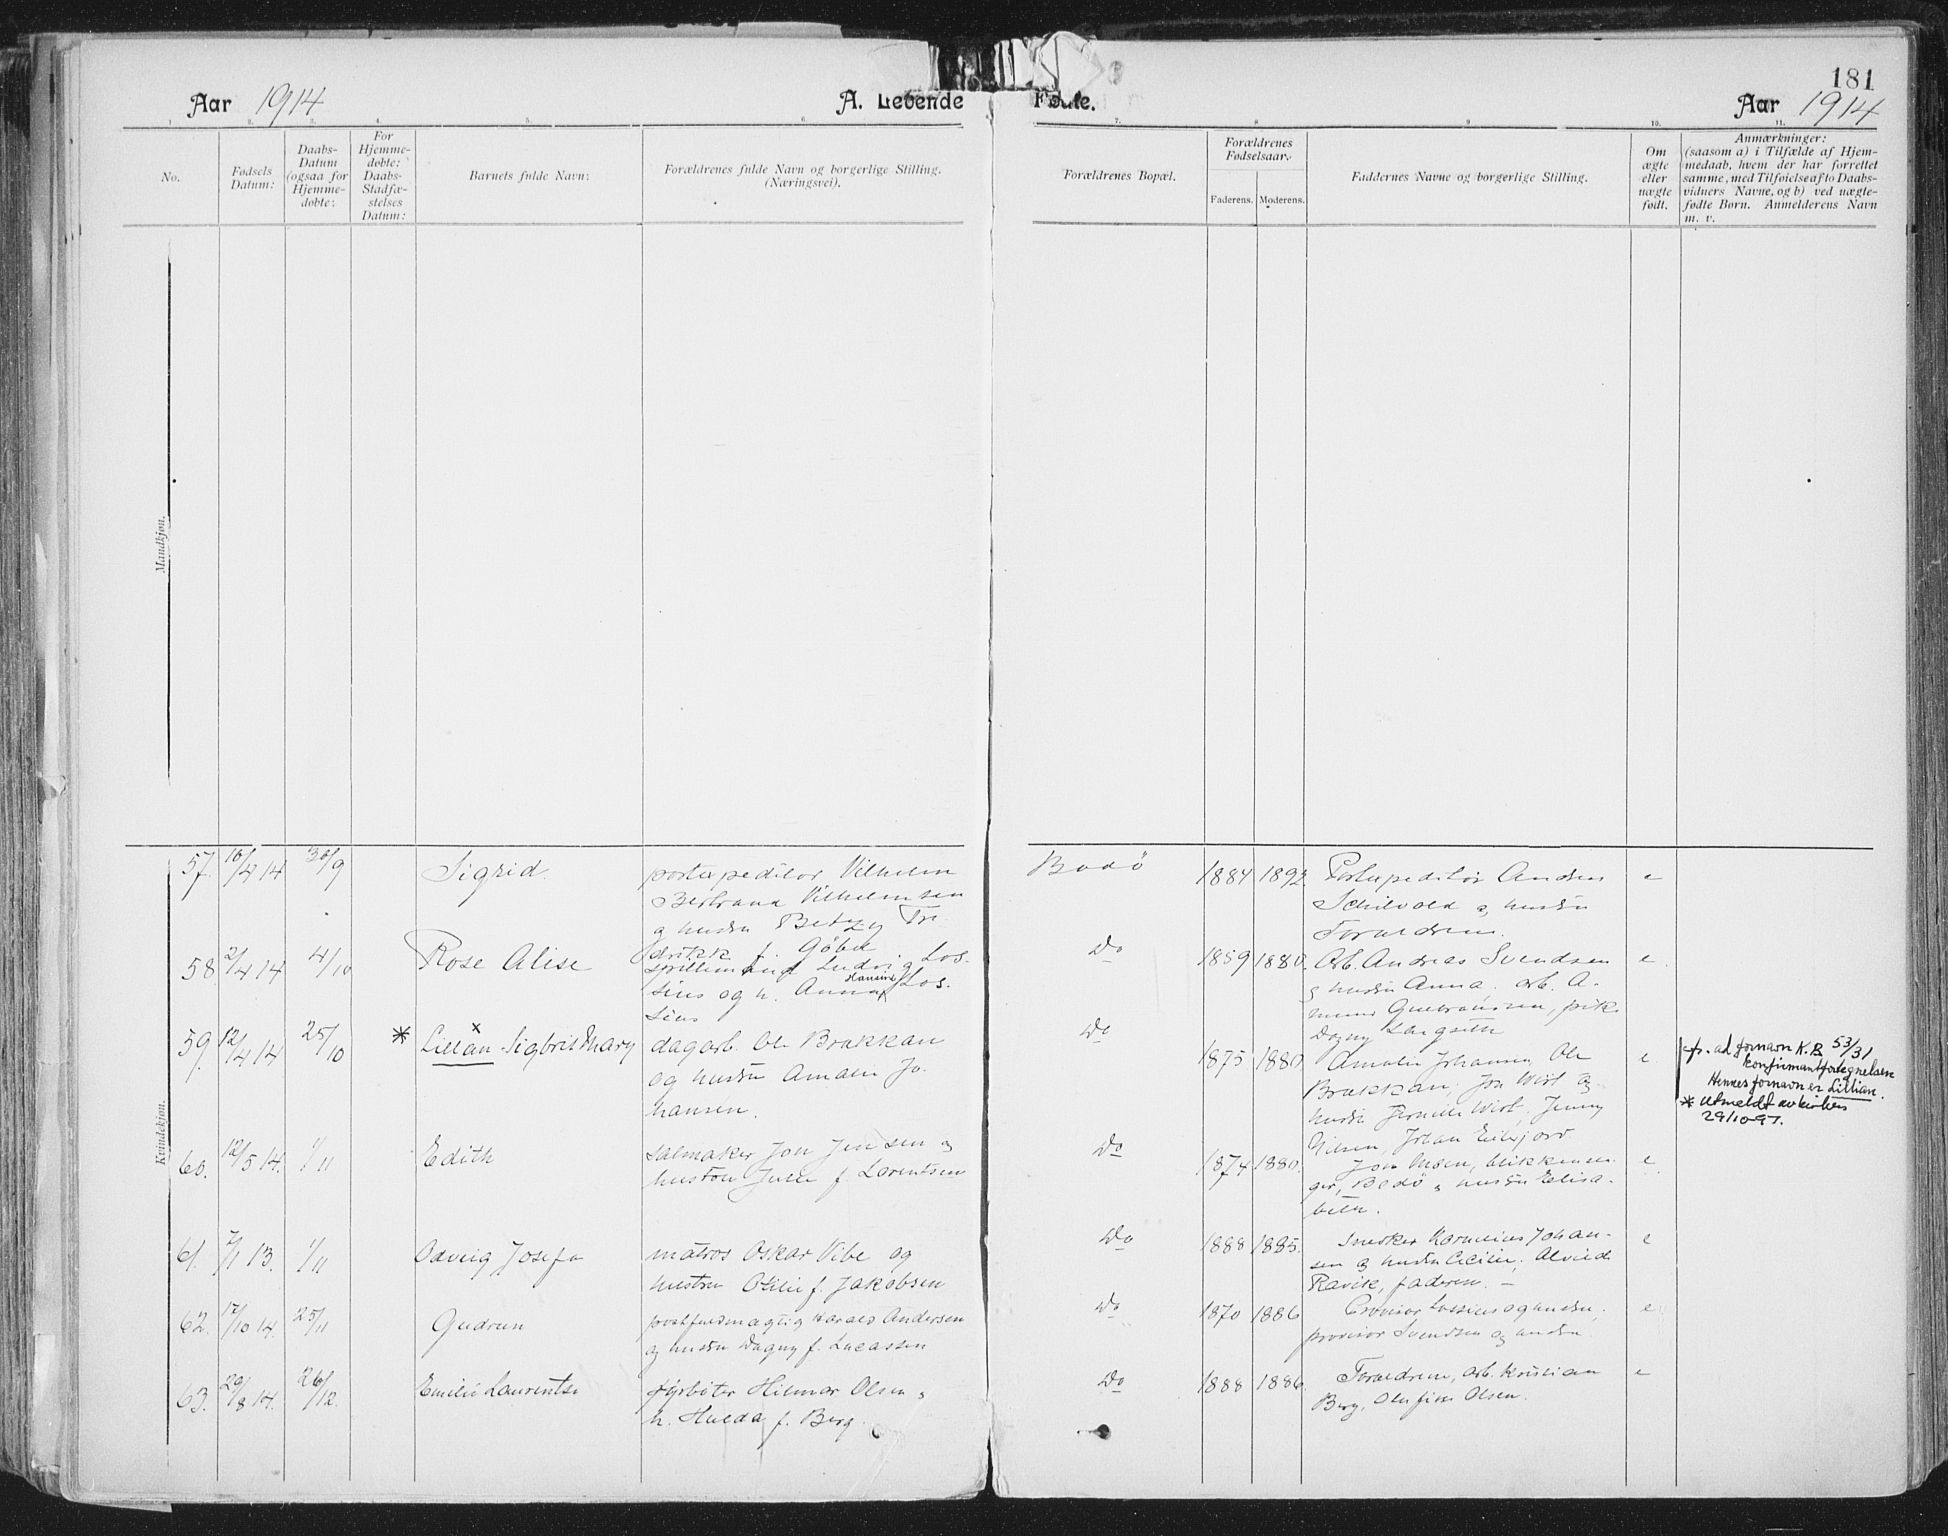 181
Aar 1914
A. Levende
Fødte.
Aar 1914
1. 2. 3. 4. 5. 6. 7. 8. 9. 10. 11.
No.
Fødsels
Datum:
Daabs-
Datum
(ogsaa for
Hjemme-
døbte:
For
Hjemme-
døbte:
Daabs-
Stadfæ-
stelses
Datum:
Barnets fulde Navn:
Forældrenes fulde Navn og borgerlige Stilling.
(Næringsvei).
Forældrenes Bopæl.
Forældrenes
Fødselsaar.
Faderens. Moderens.
Faddernes Navne og borgerlige Stilling.
Om
ægte
eller
uægte
født.
Anmærkninger:
(saasom a) i Tilfælde af Hjem-
medaab, hvem der har forrettet
samme, med Tilføielse af to Daabs-
vidners Navne, og b) ved uægte-
fødte Børn. Anmelderens Navn
m. v.
Mandkjøn.
Kvindekjøn.
57. 10/4 14 30/9 Sigrid.
postexpeditor Vilhelm
Bertrand Vilhelmsen
og hustru Betzy Fre-
drikk f. Gøbel
Bodø 1884 1892.
Postexpeditør Andreas
Schilvold og hustru
Forældrene.
e
58. 2/4 14 4/10 Rose Alise
spillemand Ludvig Los-
sius og h. Anna Hansine Los-
sius
Do 1859 1880.
Arb. Andreas Svendsen
og hustru Anna. arb. A-
Dagny Langseth
e.
59. 12/4 14 25/10 * Lillan x Sigbrit Mary
dagarb. Ole Brækkan
og hustru Amalie Jo-
hansen.
Do 1875 1880
Amalie Johansen, Ole
Brækkan, Jon Wist og
hustru Pernille Wist, Jenny
Nilsen, Johan
e
fr. ad fornavn K.B 53/31
konfirmantfortegnelsen
Hennes fornavn er Lillian.
* Utmeldt av kirken
29/10-97.
60. 12/5 14. 1/11 Edith
salmaker Jon Jensen og
hustru Julie f. Lorentsen
Do 1874 1880.
Jon Moen, blikkensla-
ger, Bodø og hustru Elisa-
beth.
e
61. 7/11 13. 1/11 Odveig Josefa
matros Oskar Vibe og
hustru Otilie f. Jakobsen
Do 1888 1885.
Snedker Kornelius Johan-
sen og hustru Cecilie, Alvilde
Ravik, faderen. —
e
62. 17/10 14. 25/11 Gudrun
postfuldmægtig Harald Andersen
og hustru Dagny f. Lucassen
Do 1870 1886
Provisor Lossius og hustru,
provisor Svendsen og hustru.
e
63. 29/8 14. 26/12. Emilie Laurentse
fyrbøter Hilmar Olsen og
h. Hulda f. Berg.
Do 1888 1886.
Forældrene, arb. Kristian
Berg, Olufine Olsen.
e